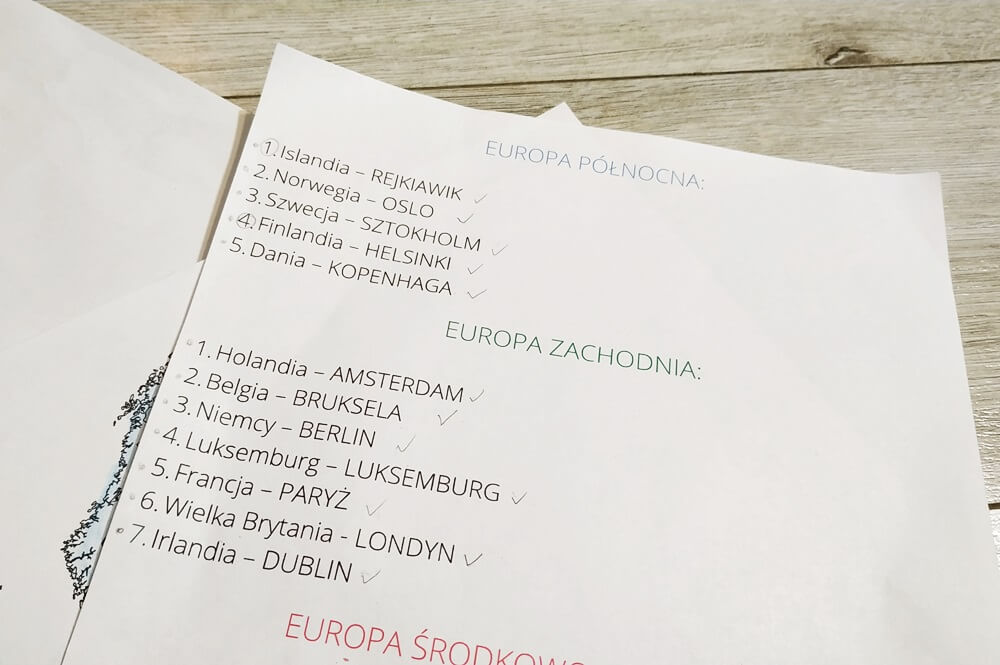 EUROPA PÓŁNOCNA:
1. Islandia – REJKIAWIK
2. Norwegia – OSLO
3. Szwecja – SZTOKHOLM
4. Finlandia – HELSINKI
5. Dania – KOPENHAGA
EUROPA ZACHODNIA:
1. Holandia – AMSTERDAM
2. Belgia – BRUKSELA
3. Niemcy – BERLIN
4. Luksemburg – LUKSEMBURG
5. Francja – PARYŻ
6. Wielka Brytania - LONDYN
7. Irlandia – DUBLIN
EUROPA